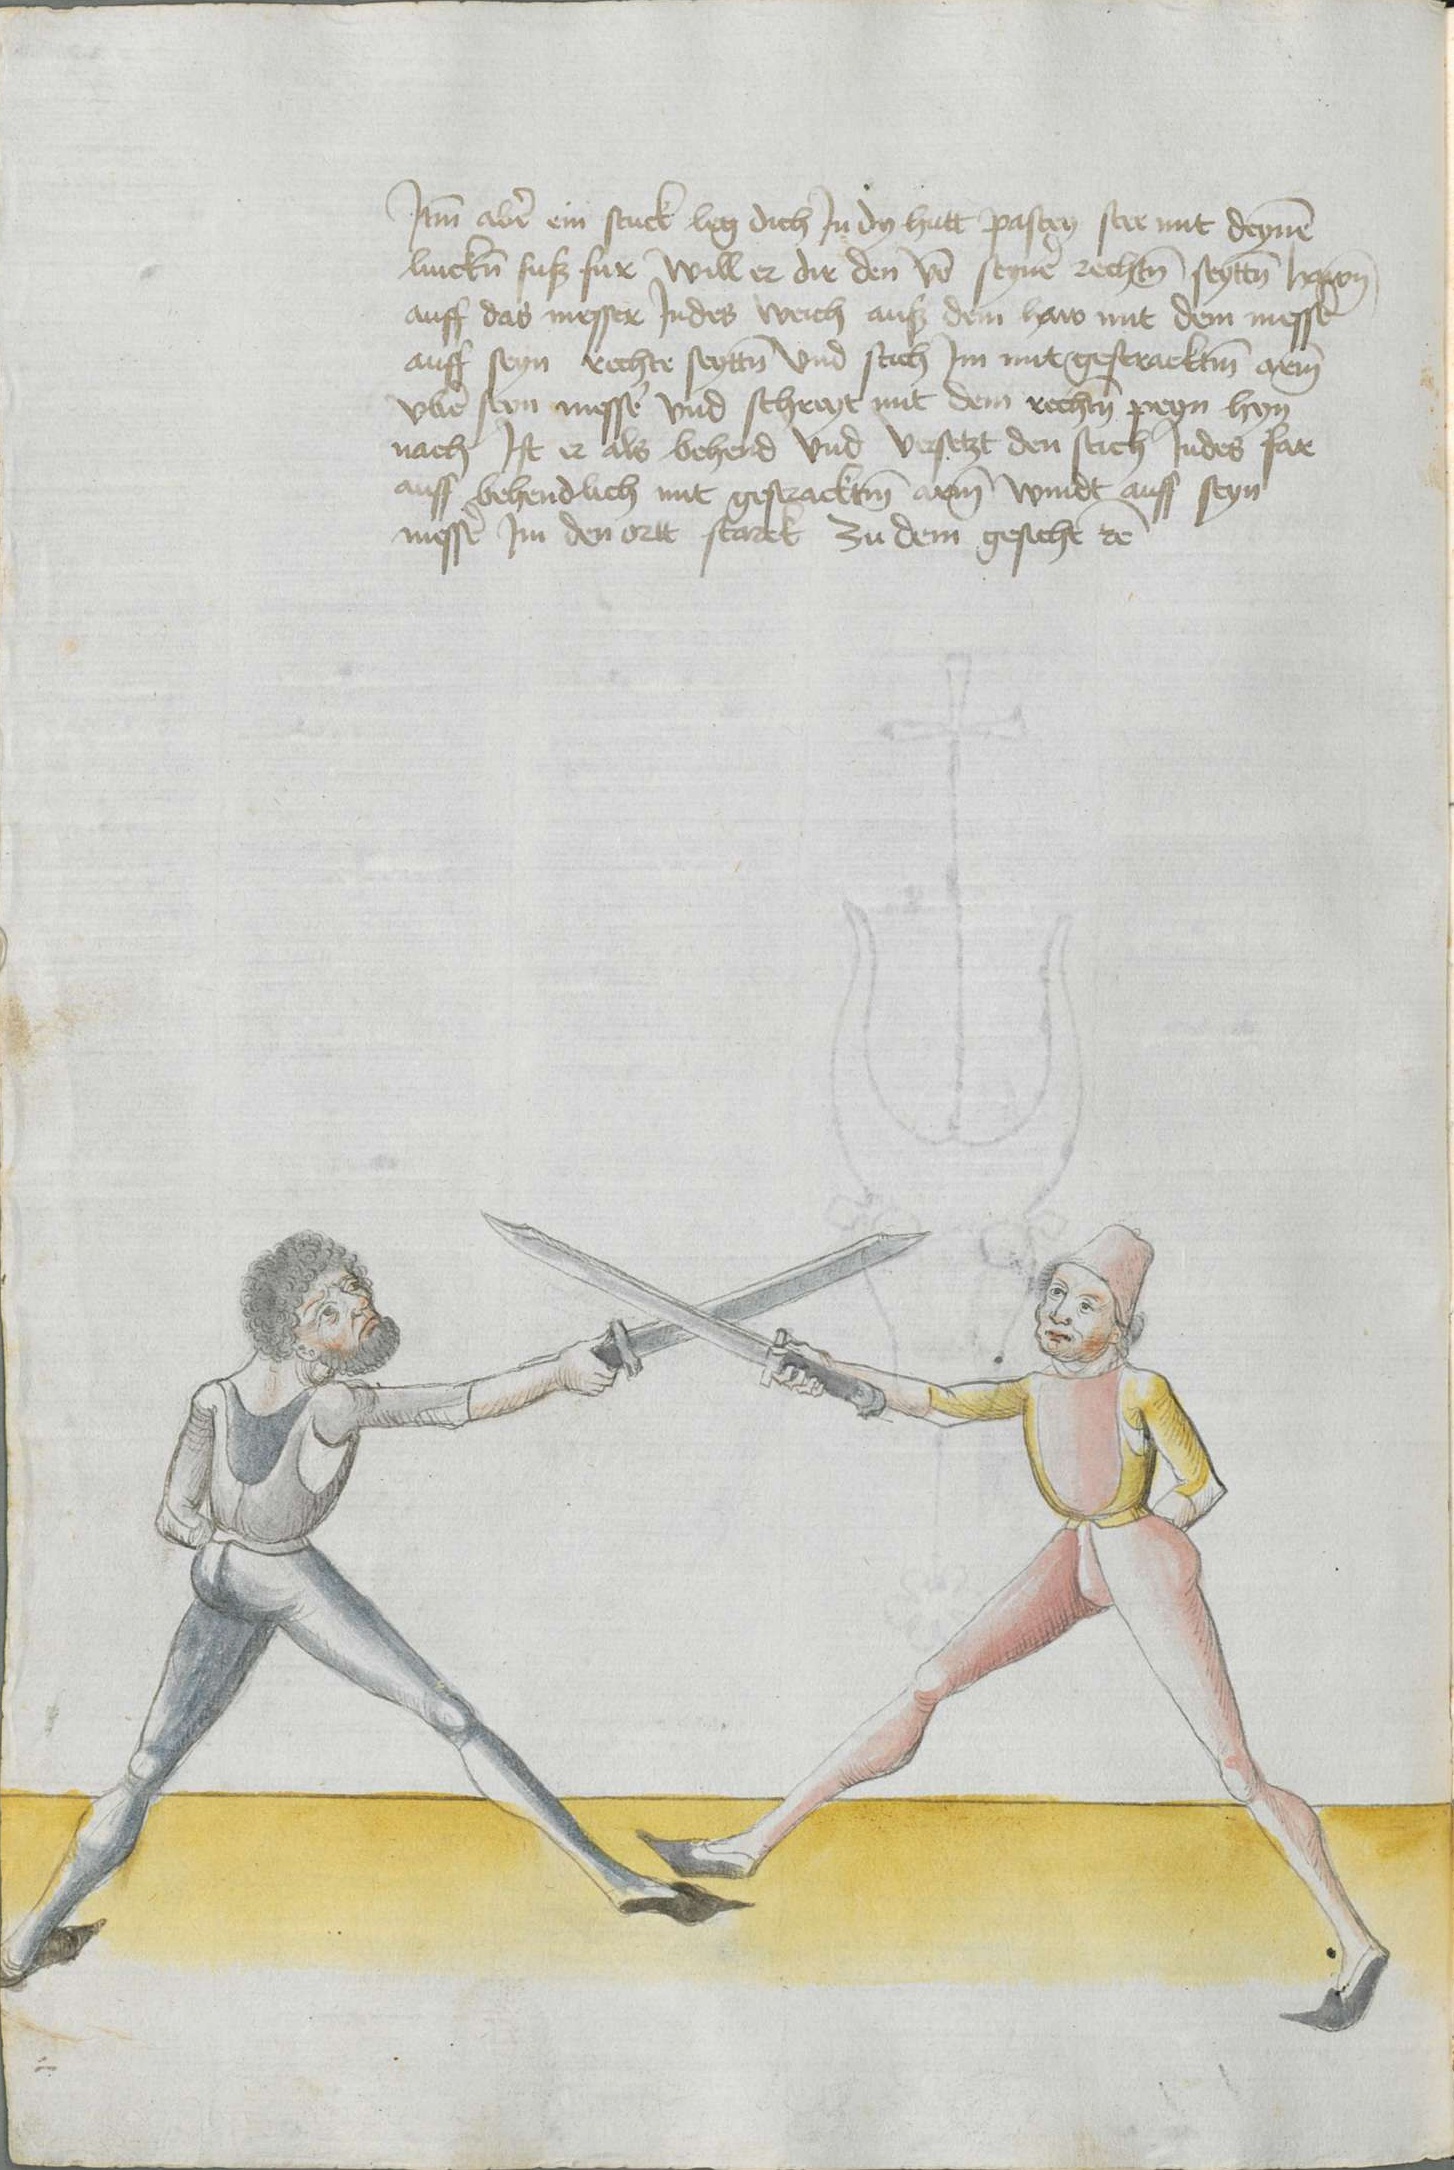 Itm̄ abr̄ ein stuck leg dich Jn dy hutt pastey stee mit deynē
linckn̄ fusz fur Will er dir den vō seynē rechtn̄ seyttn̄ hawn̄
auff das messer Jndes weich ausz dem haw mit dem messē
auff seyn rechte seyttn̄ vnd stich Jm mit gestracktm̄ arm̄
vbē seyn messē vnd schreyt mit dem rechtn̄ peyn hyn
nach Jst er als behend vnd versetzt den stich Jndes far
auff behendlich mit gestracktm̄ arm̄ windt auff seyn
messē Jm den ortt starck zu dem gesicht rē